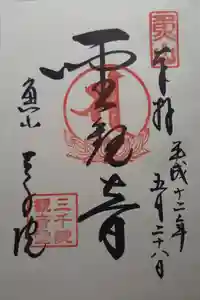 奉拝
平成十二年
五月二十八日
聖観音
魚山
三千院
三千院
観音堂